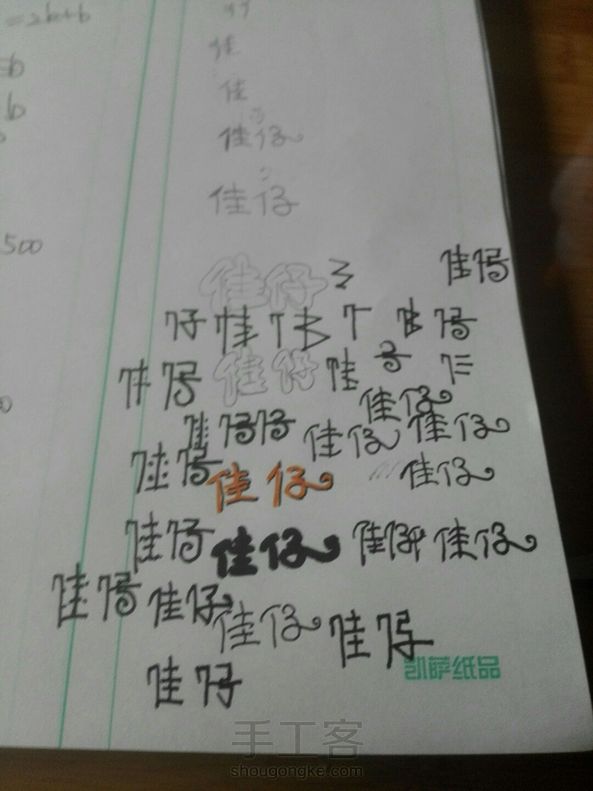 =2b+b
佳
佳
佳仔
佳仔
500
佳仔
佳仔
仔 佳
佳仔 佳仔 佳
佳仔
佳 仔仔 佳仔 佳仔
佳仔 佳仔 佳仔
佳仔 佳仔 佳仔 佳仔
佳仔 佳仔 佳仔 佳仔
佳仔
凯萨纸品
手工客
shougongke.com